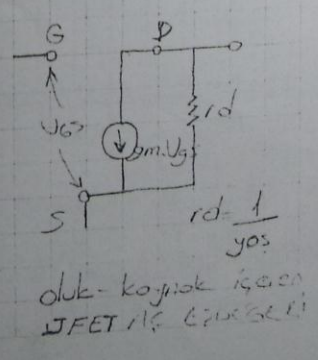 G
D
UGS
gm.Ugs
rd
S
rd = 1/yos
oluk-kaynak içeren
JFET